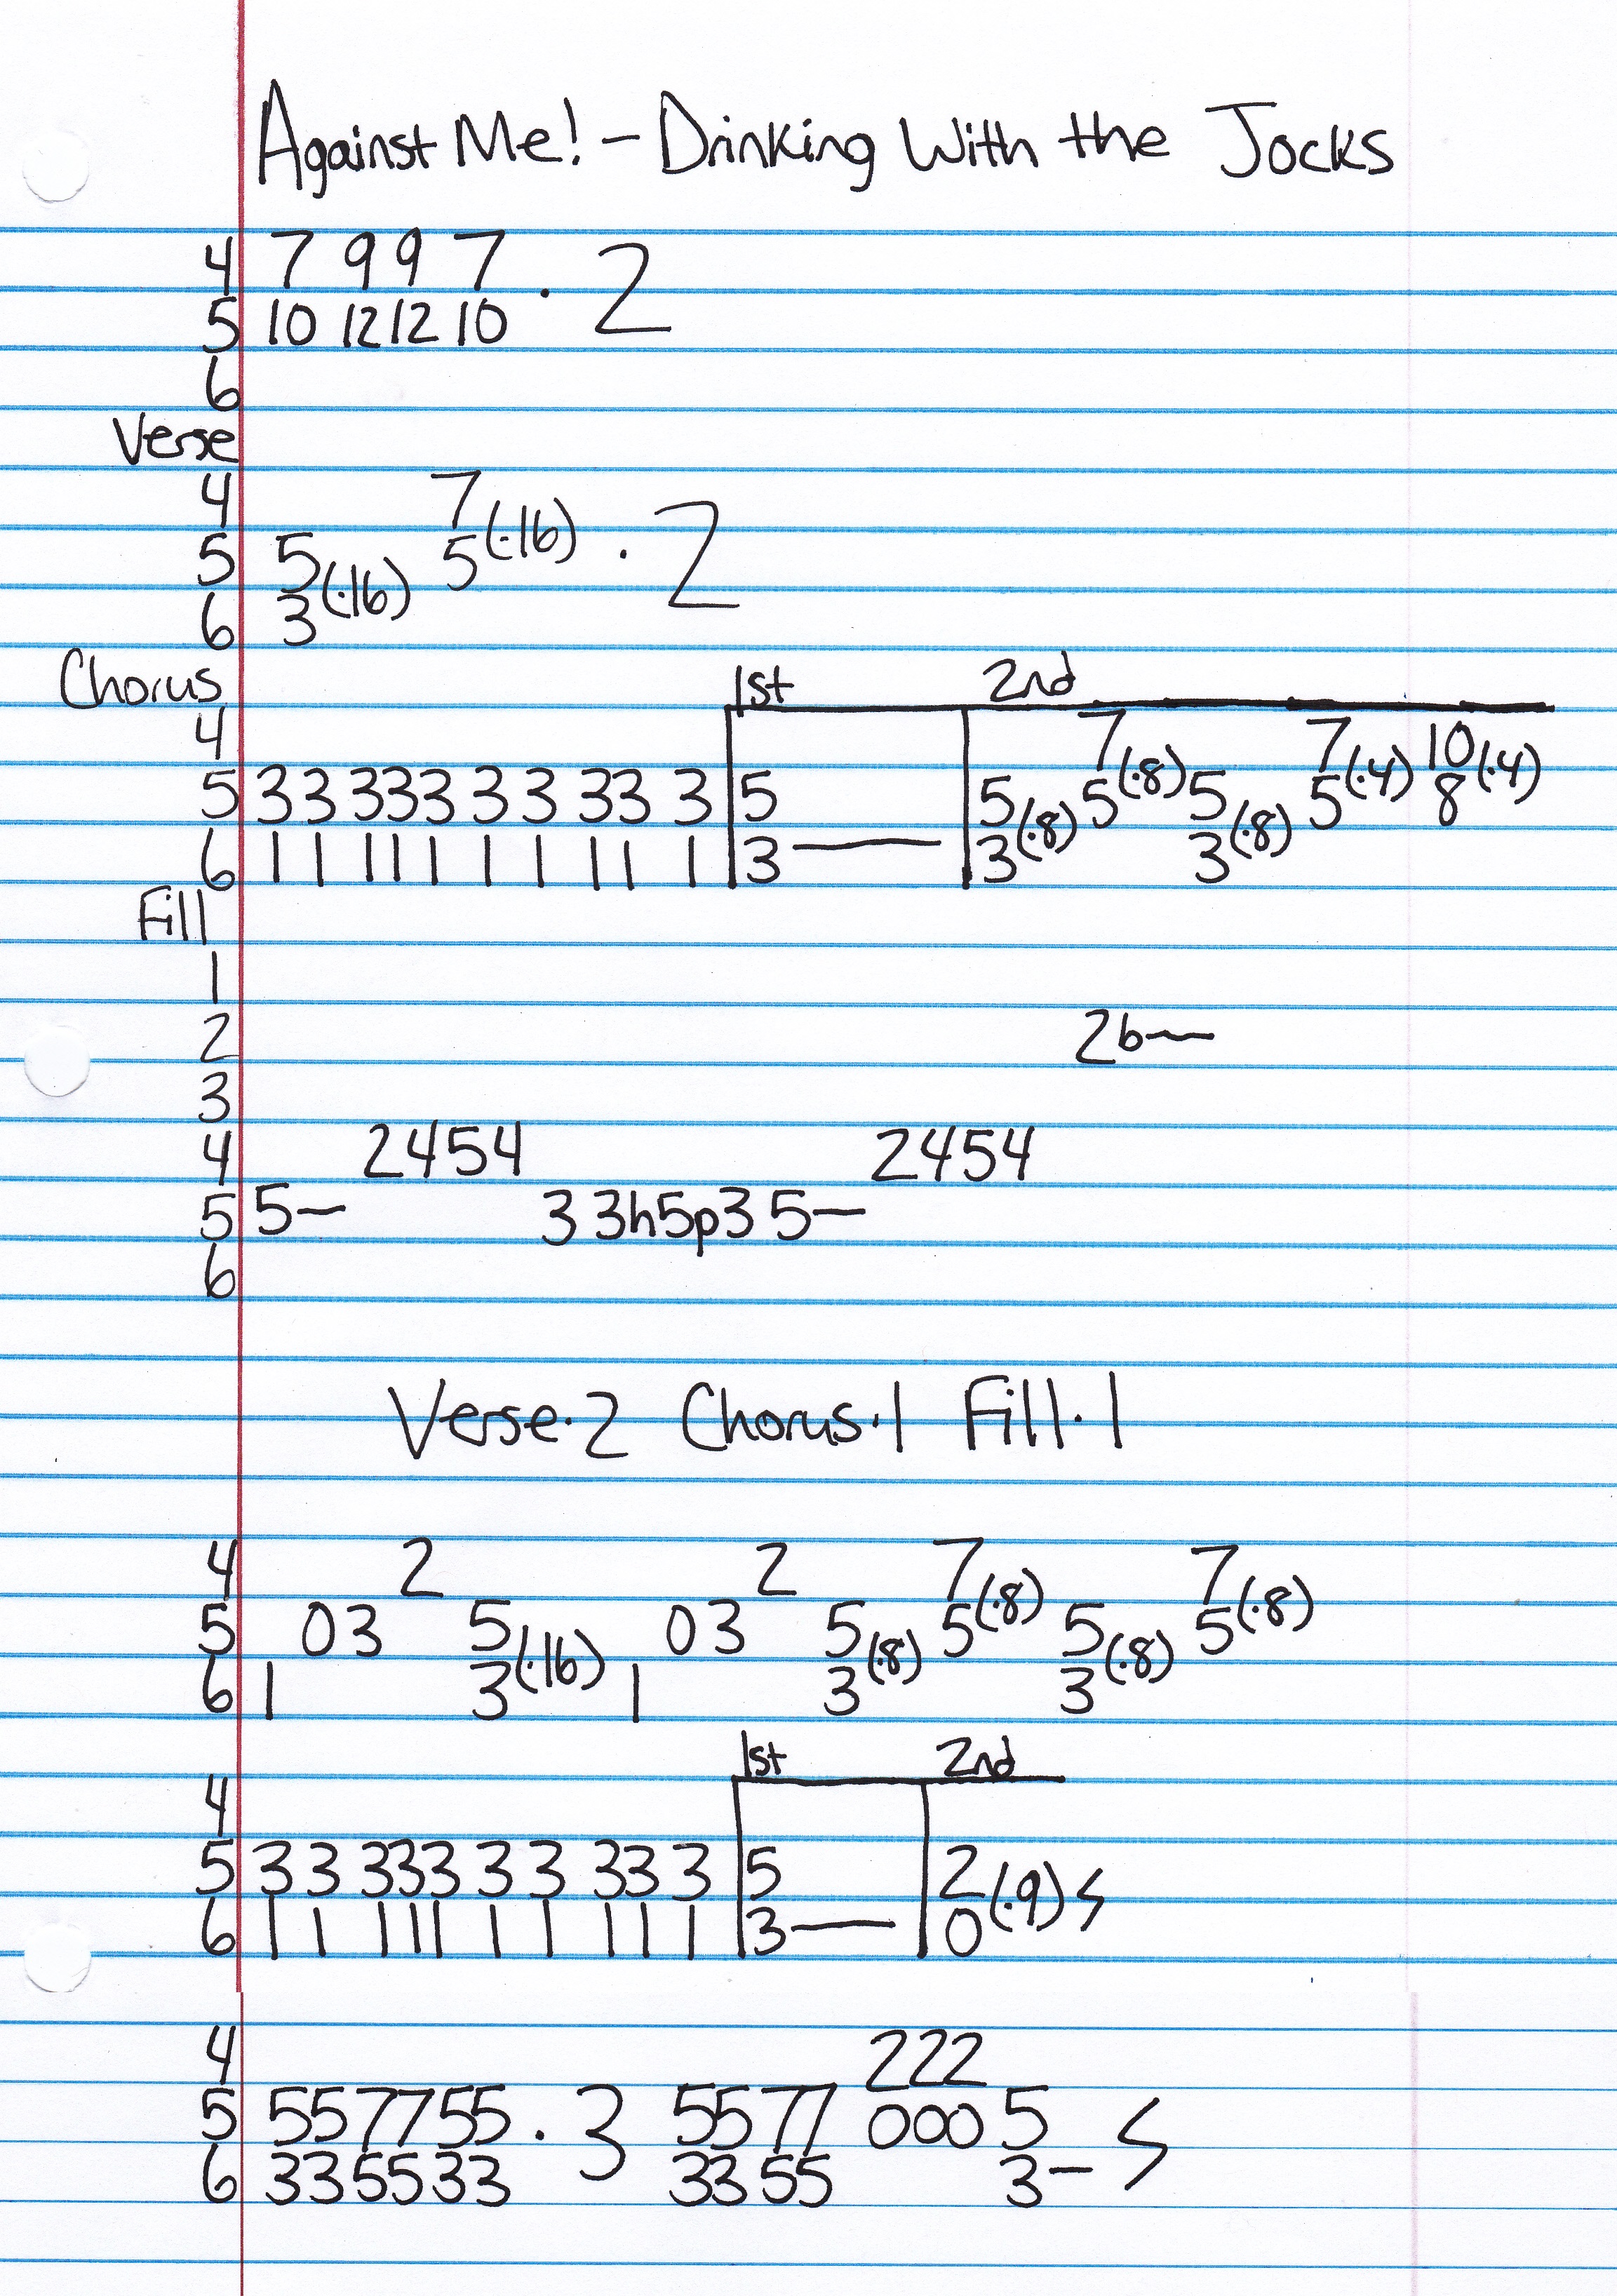 Against Me! - Drinking With the Jocks
4 7 9 9 7 · 2
5 10 12 12 10
6
Verse
4 7 (·16) · 2
5 5 (·16) 5
6 3
Chorus 1st 2nd
4 7 (·8) 7 (·4) 10 (·4)
5 3 3 3 3 3 3 3 3 3 3 5 5 (·8) 5 5 (·8) 5 8
6 1 1 1 1 1 1 1 1 1 1 3 — 3 3
Fill
1
2 2b~
3
4 2 4 5 4 2 4 5 4
5 5— 3 3h5p3 5—
6
Verse·2 Chorus·1 Fill·1
4 2 2 7 (·8) 7 (·8)
5 0 3 5 (·16) 0 3 5 (·8) 5 5 (·8) 5
6 1 3 1 3 3
1st 2nd
4
5 3 3 3 3 3 3 3 3 3 3 5 2 (·9)
6 1 1 1 1 1 1 1 1 1 1 3 — 0
4 2 2 2
5 5 5 7 7 5 5 · 3 5 5 7 7 0 0 0 5
6 3 3 5 5 3 3 3 3 5 5 3 —